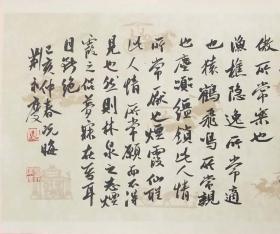 傲所常樂也
漁樵隱逸所常適
也猿鶴飛鳴所常親
也塵囂韁鎖此人情
所常厭也煙霞仙聖
此人情所常願而不得
見也然則林泉之志煙
霞之侶夢寐在焉耳
目斷絕
己亥仲春